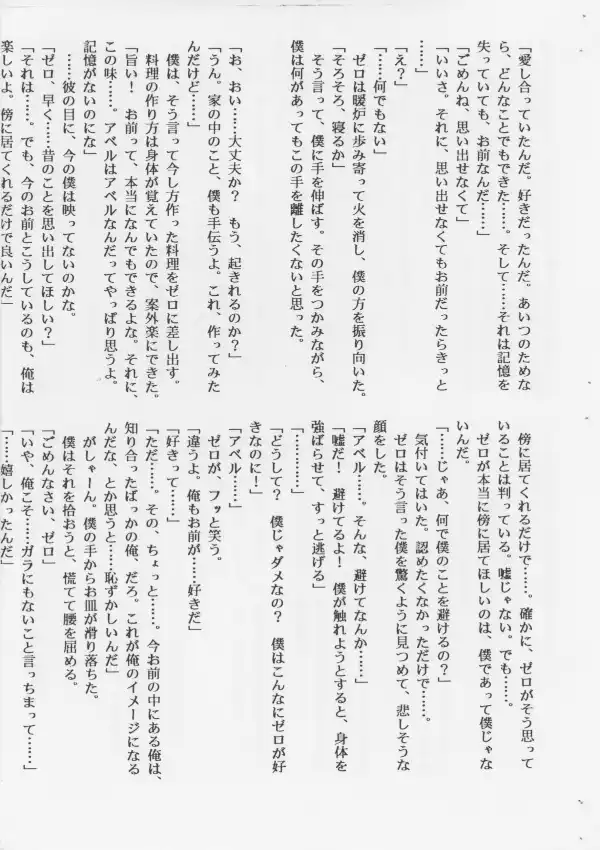 「愛し合っていたんだ。好きだったんだ。あいつのためな
ら、どんなことでもできた……。そして……それは記憶を
失っていても、お前なんだ……」
「ごめんね、思い出せなくて」
「いいさ。それに、思い出せなくてもお前だったらきっと
……」
「え？」
「……何でもない」
ゼロは暖炉に歩み寄って火を消し、僕の方を振り向いた。
「そろそろ、寝るか」
そう言って、僕に手を伸ばす。その手をつかみながら、
僕は何があってもこの手を離したくないと思った。
「お、おい……大丈夫か？　もう、起きれるのか？」
「うん。家の中のこと、僕も手伝うよ。これ、作ってみた
んだけど……」
僕は、そう言って今し方作った料理をゼロに差し出す。
料理の作り方は身体が覚えていたので、案外楽にできた。
「旨い！　お前って、本当になんでもできるよな。それに、
この味……。アベルはアベルなんだってやっぱり思うよ。
記憶がないのにな」
……彼の目に、今の僕は映ってないのかな。
「ゼロ、早く……昔のことを思い出してほしい？」
「それは……。でも、今のお前とこうしているのも、俺は
楽しいよ。傍に居てくれるだけで良いんだ」
傍に居てくれるだけで……。確かに、ゼロがそう思って
いることは判っている。嘘じゃない。でも……。
ゼロが本当に傍に居てほしいのは、僕であって僕じゃな
いんだ。
「……じゃあ、何で僕のことを避けるの？」
気付いてはいた。認めたくなかっただけで……。
ゼロはそう言った僕を驚くように見つめて、悲しそうな
顔をした。
「アベル……。そんな、避けてなんか……」
「嘘だ！　避けてるよ！　僕が触れようとすると、身体を
強ばらせて、すっと逃げる」
「…………」
「どうして？　僕じゃダメなの？　僕はこんなにゼロが好
きなのに！」
「アベル」
ゼロが、フッと笑う。
「違うよ。俺もお前が……好きだ」
「好きって……」
「ただ……。その、ちょっと……。今お前の中にある俺は、
知り合ったばっかの俺、だろ。これが俺のイメージになる
んだな、とか思うと……恥ずかしいんだ」
がしゃーん。僕の手からお皿が滑り落ちた。
僕はそれを拾おうと、慌てて腰を屈める。
「ごめんなさい、ゼロ」
「いや、俺こそ……ガラにもないこと言っちまって……」
「……嬉しかったんだ」